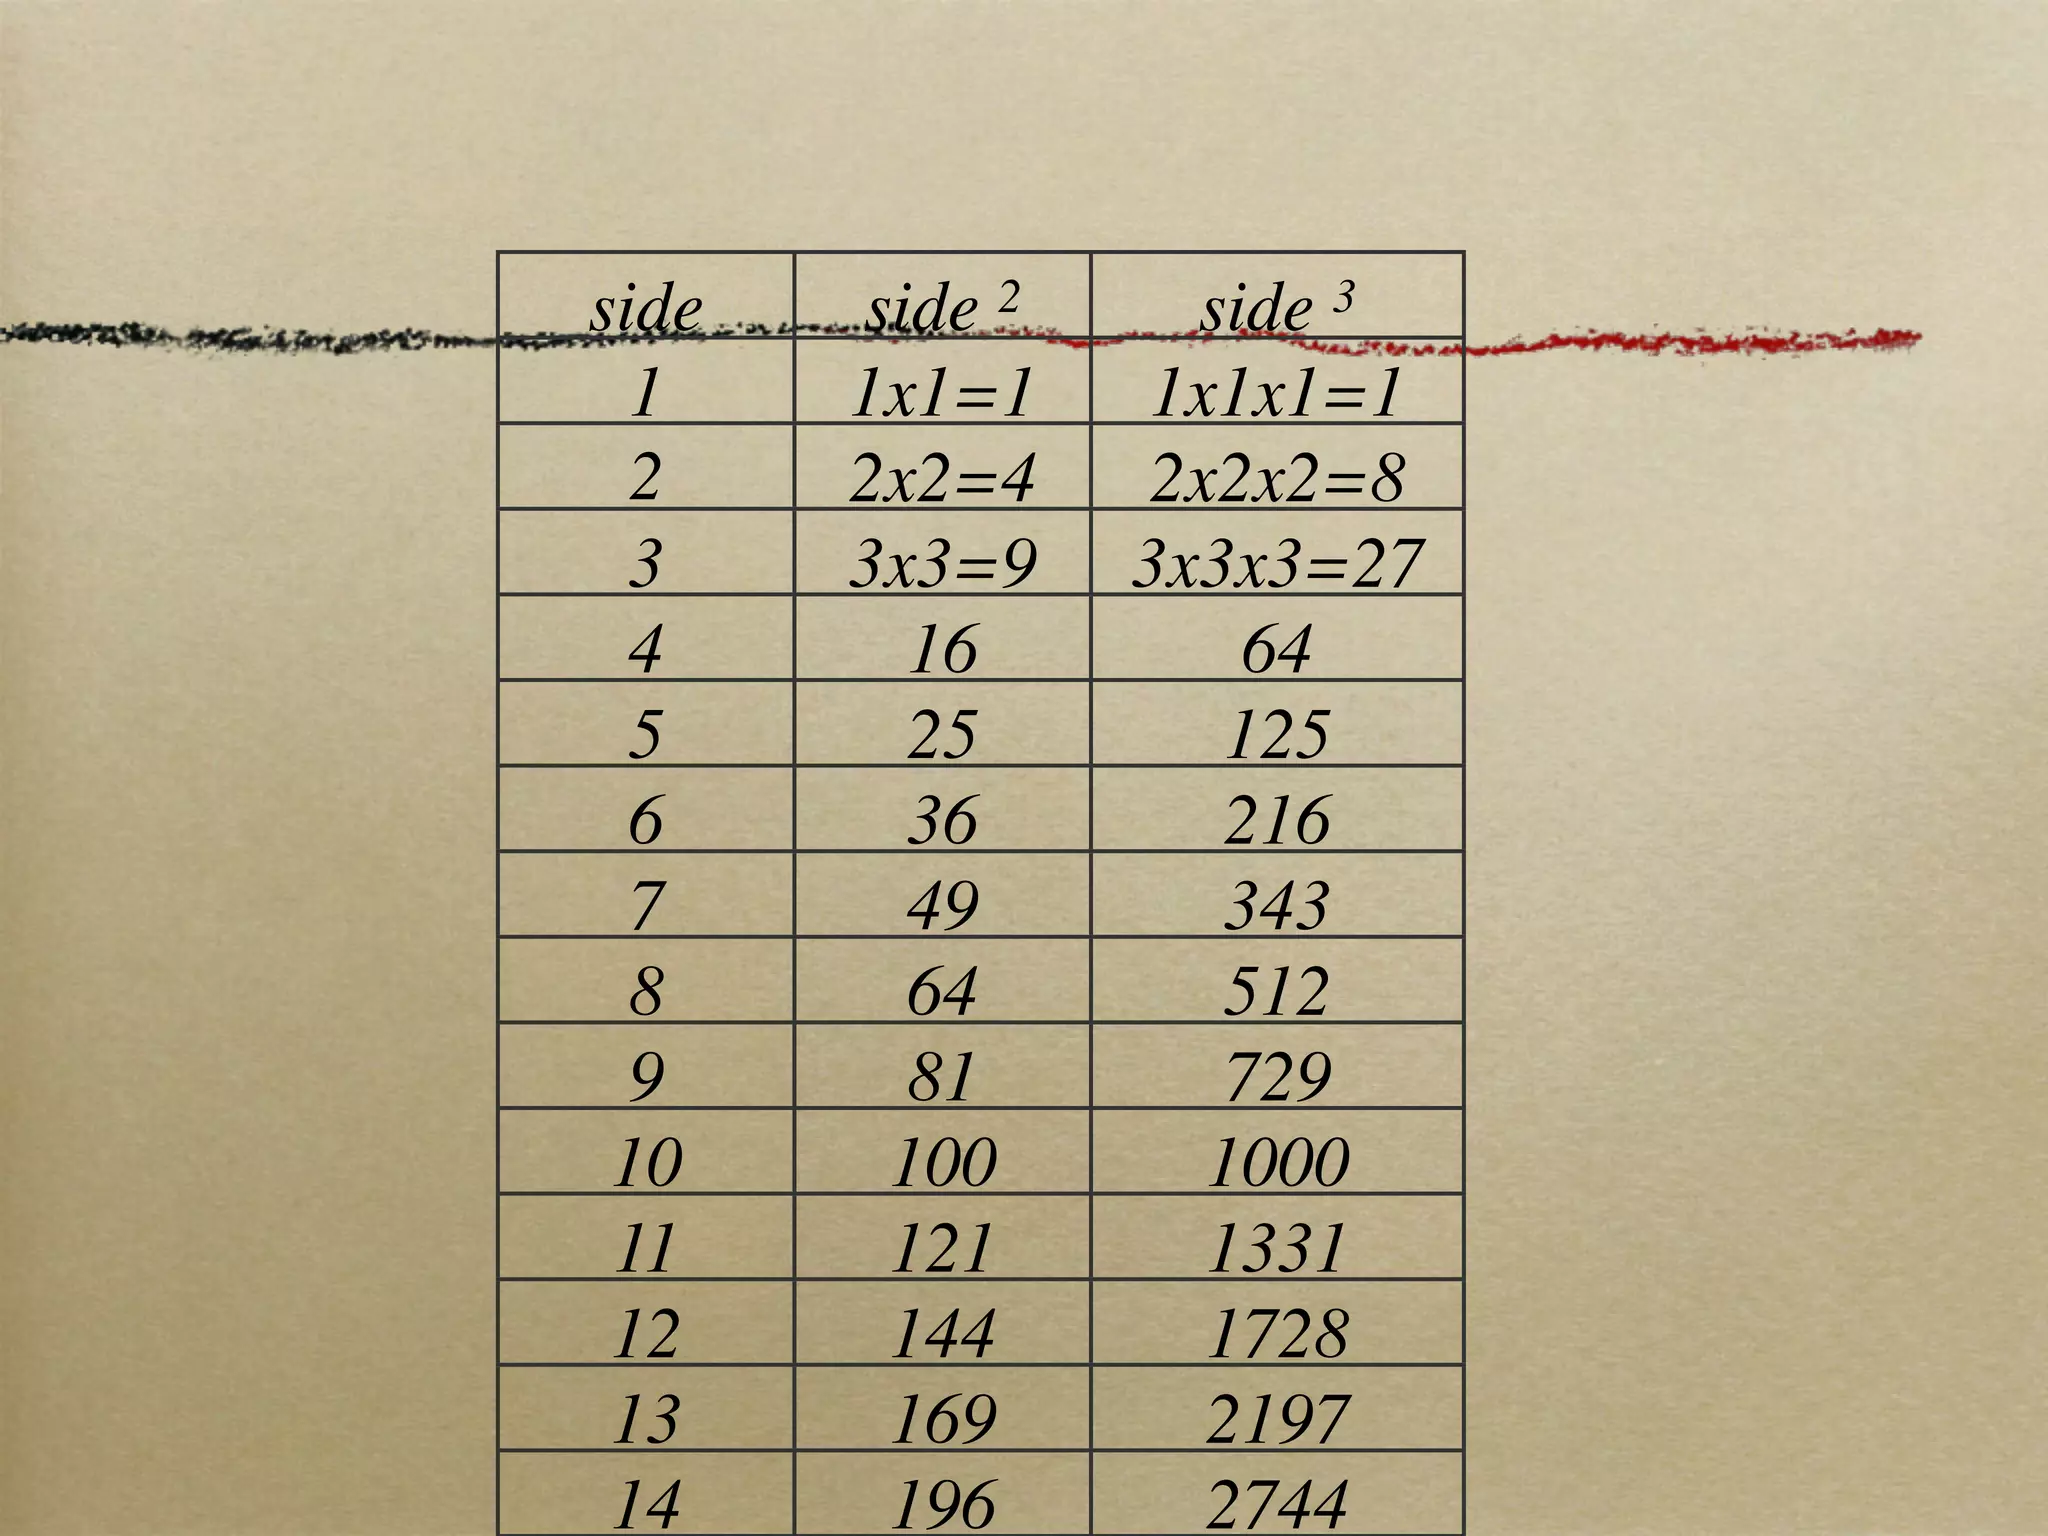 side side ²  side ³
1 1x1=1 1x1x1=1
2 2x2=4 2x2x2=8
3 3x3=9 3x3x3=27
4 16 64
5 25 125
6 36 216
7 49 343
8 64 512
9 81 729
10 100 1000
11 121 1331
12 144 1728
13 169 2197
14 196 2744